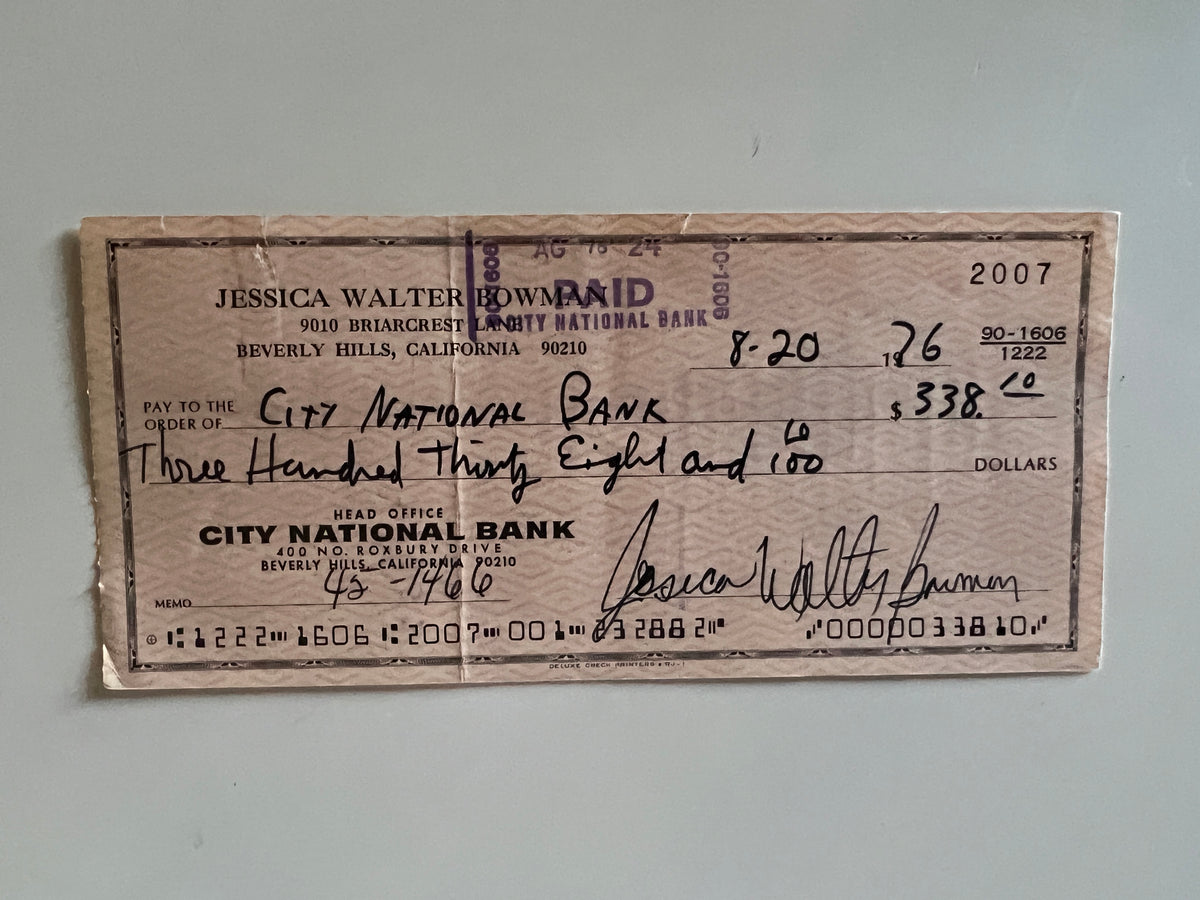 AG 76 24
90-1606
PAID
CITY NATIONAL BANK
90-1606
2007
JESSICA WALTER BOWMAN
9010 BRIARCREST LANE
BEVERLY HILLS, CALIFORNIA 90210
8-20 1976
90-1606
1222
PAY TO THE
ORDER OF CITY NATIONAL BANK $ 338. 10
Three Hundred Thirty Eight and 10/100 DOLLARS
HEAD OFFICE
CITY NATIONAL BANK
400 NO. ROXBURY DRIVE
BEVERLY HILLS, CALIFORNIA 90210
MEMO 42-1466
Jessica Walter Bowman
⑆1222⑉1606⑆2007⑉001⑉032882⑈ ⑇0000033810⑇
DELUXE CHECK PRINTERS